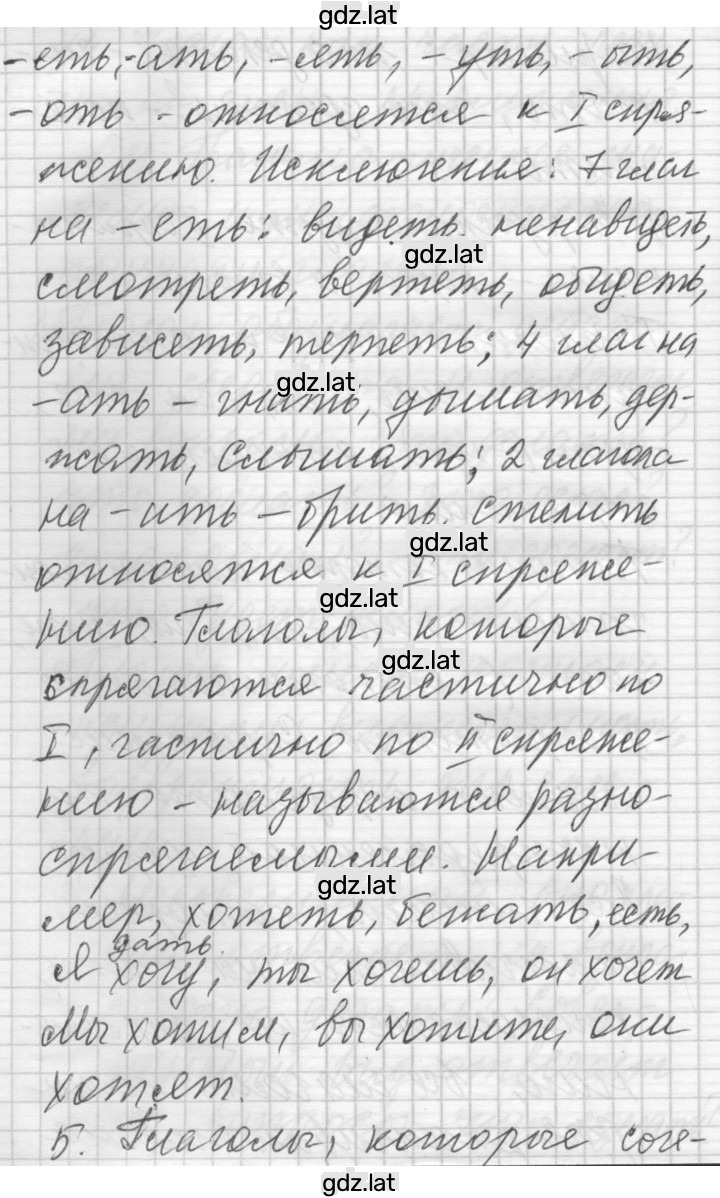 gdz.lat
-еть, -ать, -ять, -уть, -ыть,
-оть - относятся к I спря-
жению. Исключения: 7 глаг
на -еть: видеть. ненавидеть,
gdz.lat
смотреть, вертеть, обидеть,
зависеть, терпеть; 4 глаг на
gdz.lat
-ать - гнать, дышать, дер-
жать, слышать; 2 глагола
на -ить - брить. стелить
gdz.lat
относятся к I спряже-
gdz.lat
нию. Глаголы, которые
gdz.lat
спрягаются частично по
I, частично по II спряже-
нию - называются разно-
спрягаемыми. Напри-
gdz.lat
мер, хотеть, бежать, есть,
дать.
Я хочу, ты хочешь, он хочет
Мы хотим, вы хотите, они
хотят.
5. Глаголы, которые соче-
gdz.lat